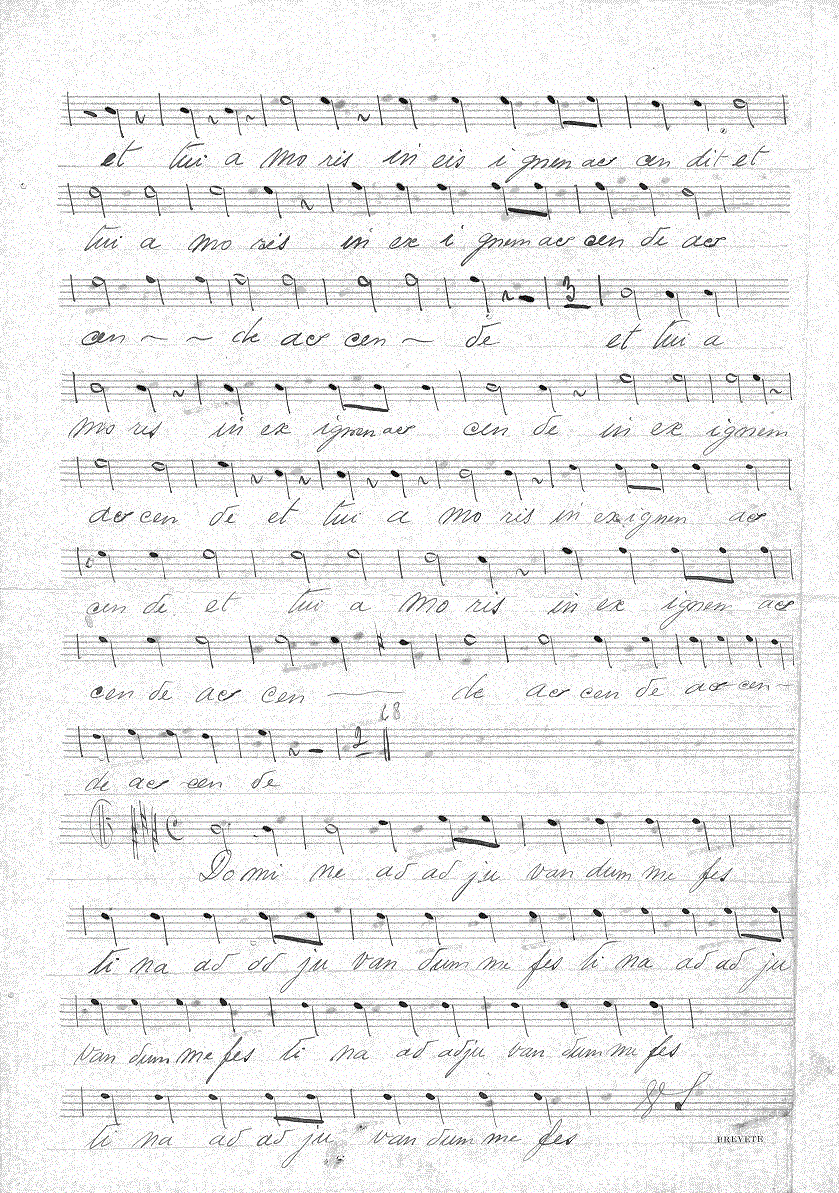 et tui a mo ris in eis i gnem ac cen dit et
tui a mo ris in ex i gnem ac cen de ac
cen ~ ~ de ac cen ~ de et tui a
3
mo ris in ex ignem ac cen de in ex ignem
ac cen de et tui a mo ris in ex ignem ac
cen de et tui a mo ris in ex ignem ac
cen de ac cen — de ac cen de ac cen -
68
2
de ac cen de
Domi ne ad ad ju van dum me fes
ti na ad ad ju van dum me fes ti na ad ad ju
van dum me fes ti na ad adju van dum me fes
ti na ad ad ju van dum me fes
BREVETE